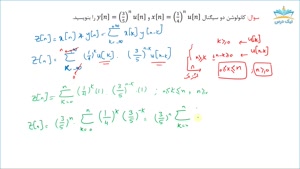 سوال: کانولوشن دو سیگنال x[n] = (1/4)^n u[n] و y[n] = (3/5)^n u[n] را بنویسید.
Z[n] = x[n] * y[n] = Σ x[k] y[n-k]
Z[n] = Σ (1/4)^k u[k] (3/5)^{n-k} u[n-k]
k≥0 ← u[k]
n-k≥0 ← u[n-k]
0≤k≤n , n≥0
Z[n] = Σ_{k=0}^{n} (1/4)^k (1) (3/5)^{n-k} (1) ; 0≤k≤n , n≥0
Z[n] = (3/5)^n Σ_{k=0}^{n} (1/4)^k (3/5)^{-k} = (3/5)^n Σ_{k=0}^{n}